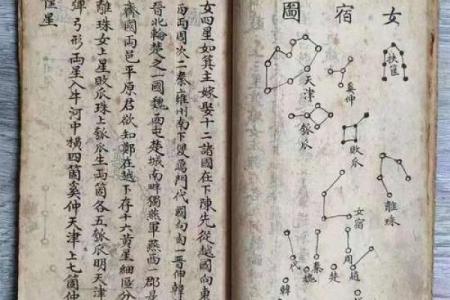 女宿圖
扶筐
奚仲
天津
瓠瓜
敗瓜
離珠
女宿
周
楚
秦
魏
代
韓
女四星如箕主嫁娶十二諸國在下陳先從越國向東
西兩周次二秦雍州南下雙鴈門代國向西一晉伸韓
晉北輪楚之一國魏西屯楚城南畔獨燕軍燕西一郡是
齊國兩邑平原君欲知鄭在越下存十六黃星細區分
離珠女上星敗瓜珠上瓠瓜生兩箇各五瓠瓜明天津
彈弓形兩星入牛河中橫四箇奚仲天津上七箇仲
筐星